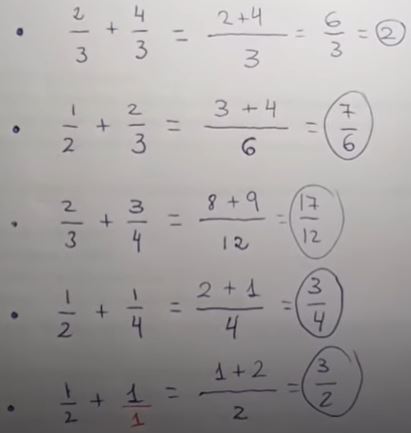 • 2/3 + 4/3 = (2+4)/3 = 6/3 = 2
• 1/2 + 2/3 = (3+4)/6 = 7/6
• 2/3 + 3/4 = (8+9)/12 = 17/12
• 1/2 + 1/4 = (2+1)/4 = 3/4
• 1/2 + 1/1 = (1+2)/2 = 3/2